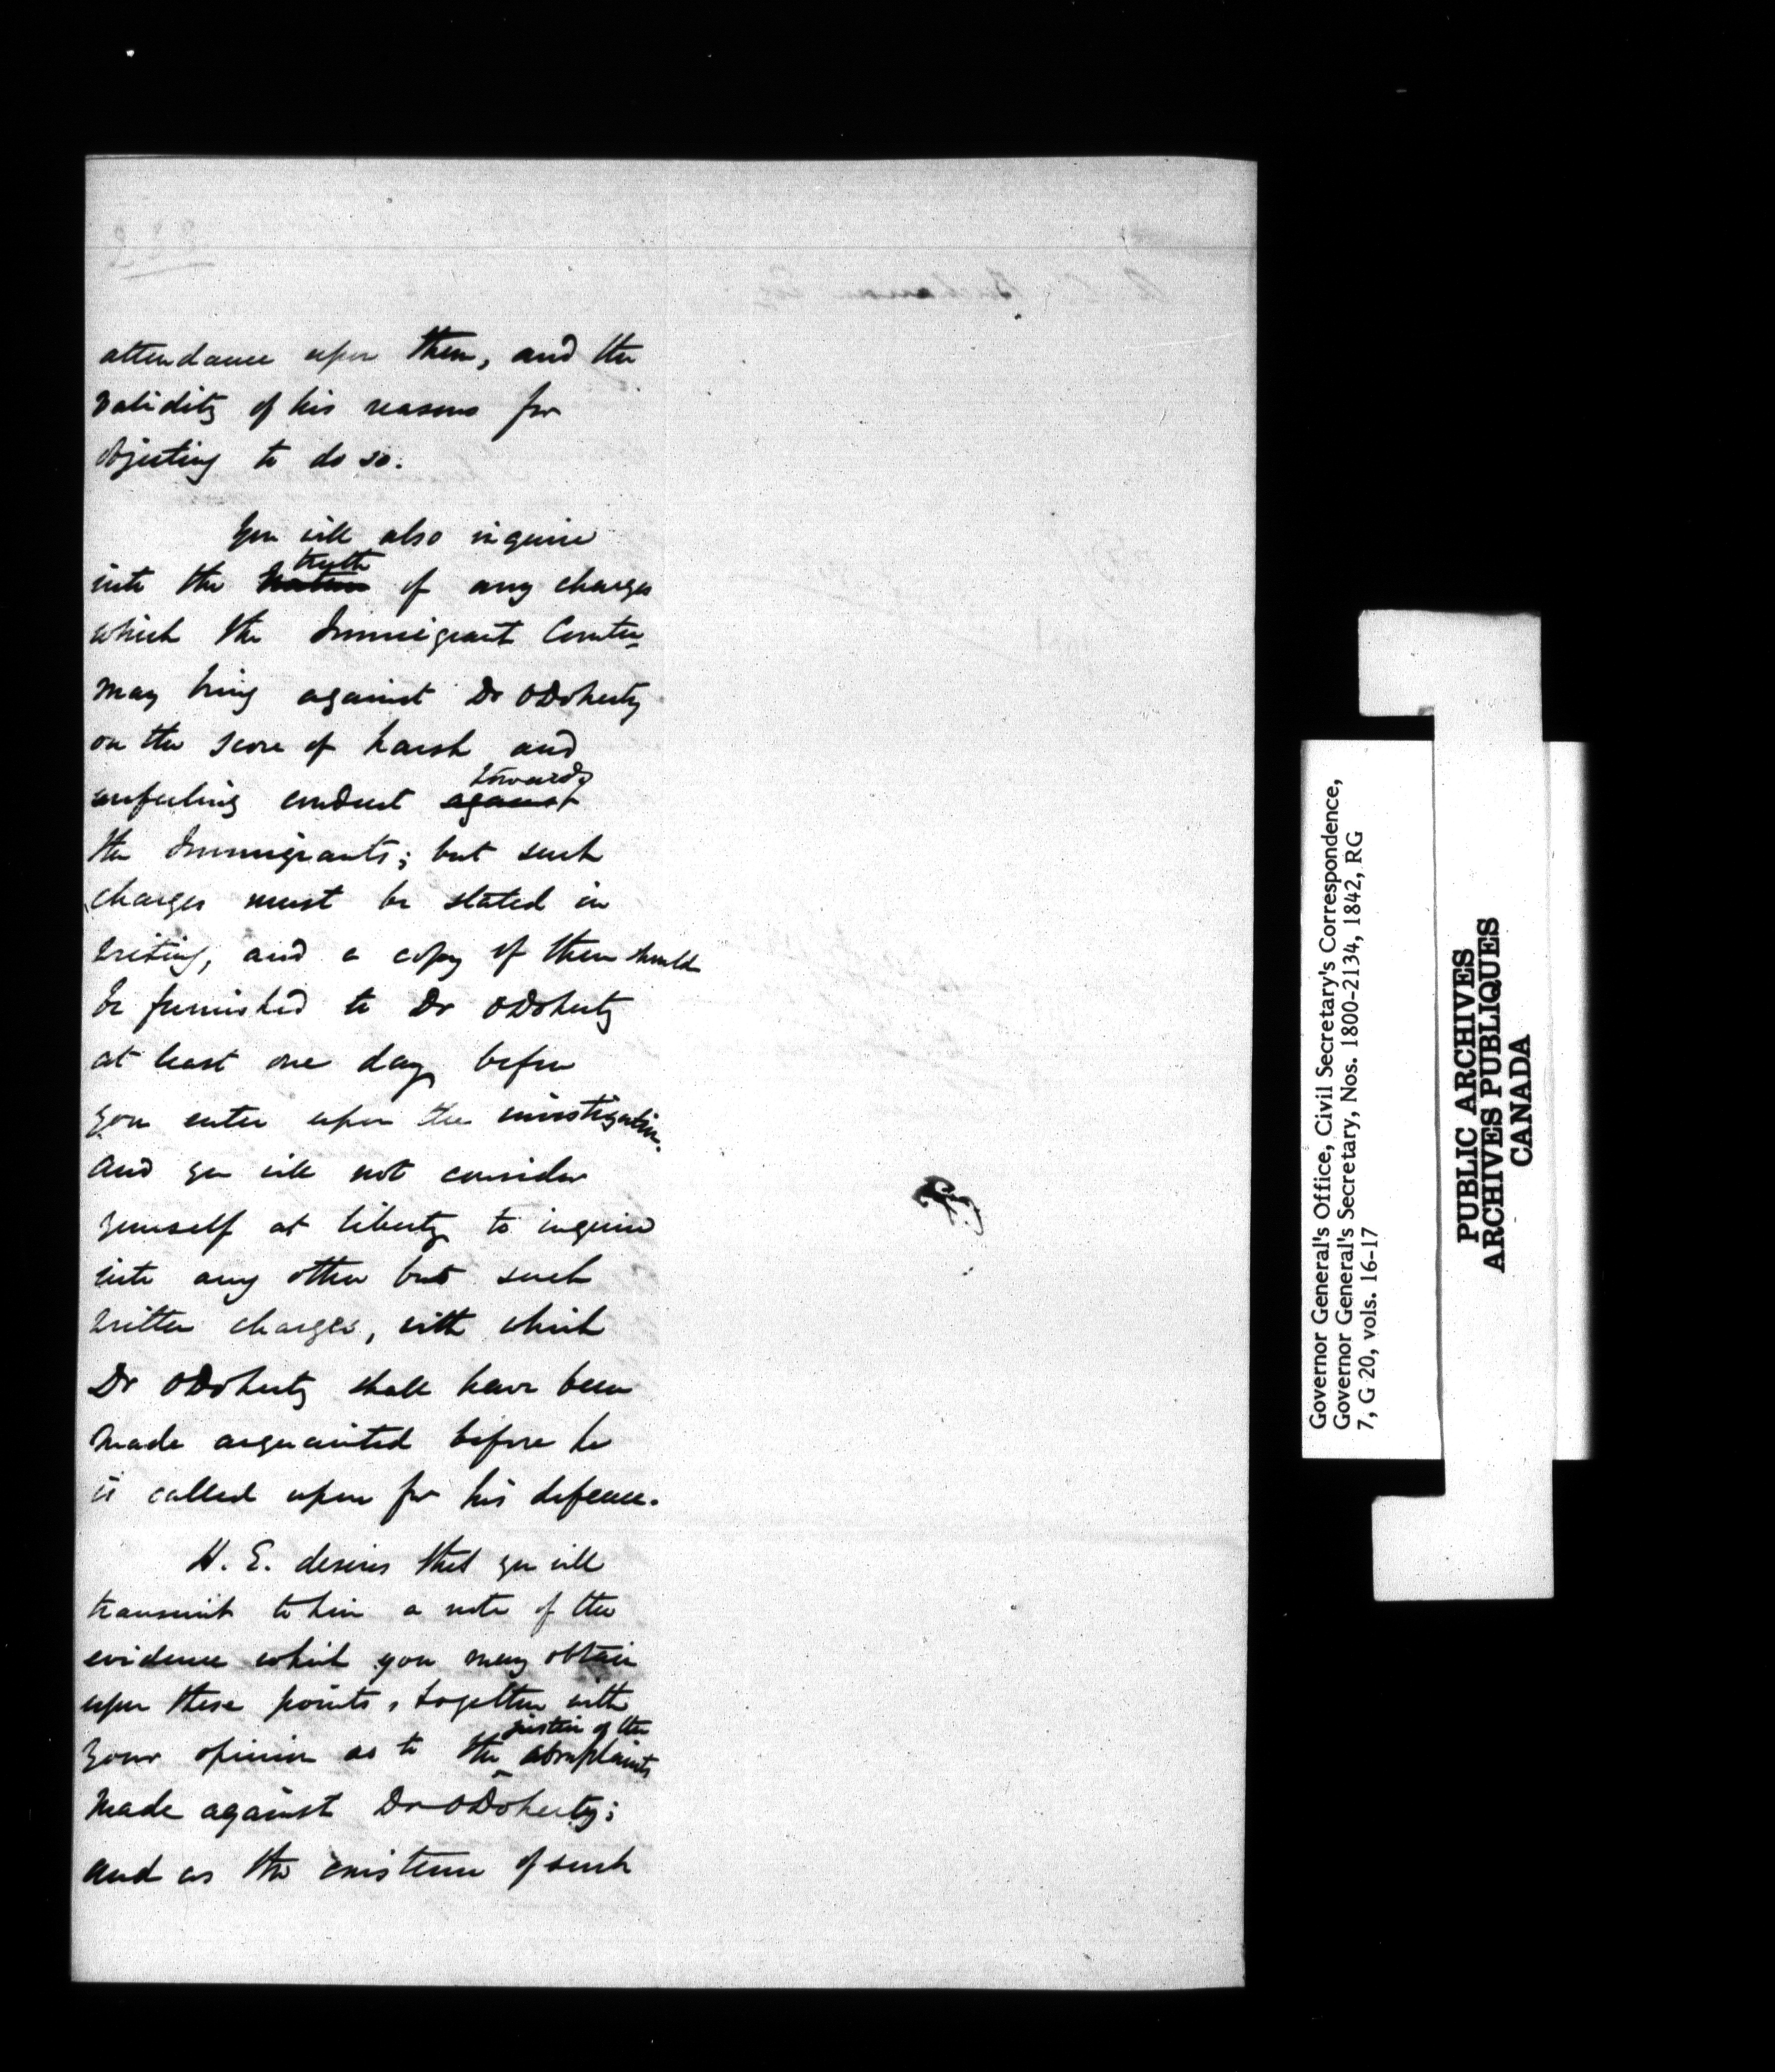 attendance upon them, and the
validity of his reasons for
objecting to do so.
You will also inquire
truth
into the nature of any charges
which the Immigrant Comtee
may bring against Dr ODoherty
on the score of harsh and
towards
unfeeling conduct against
the Immigrants; but such
charges must be stated in
writing, and a copy of them should
be furnished to Dr ODoherty
at least one day before
you enter upon the investigation.
And you will not consider
yourself at liberty to inquire
into any other but such
written charges, with which
Dr ODoherty shall have been
made acquainted before he
is called upon for his defence.
H. E. desires that you will
transmit to him a note of the
evidence which you may obtain
upon these points, together with
justice of the
your opinion as to the complaints
made against Dr ODoherty;
and as the existence of such
Governor General's Office, Civil Secretary's Correspondence,
Governor General's Secretary, Nos. 1800-2134, 1842, RG
7, G 20, vols. 16-17
PUBLIC ARCHIVES
ARCHIVES PUBLIQUES
CANADA